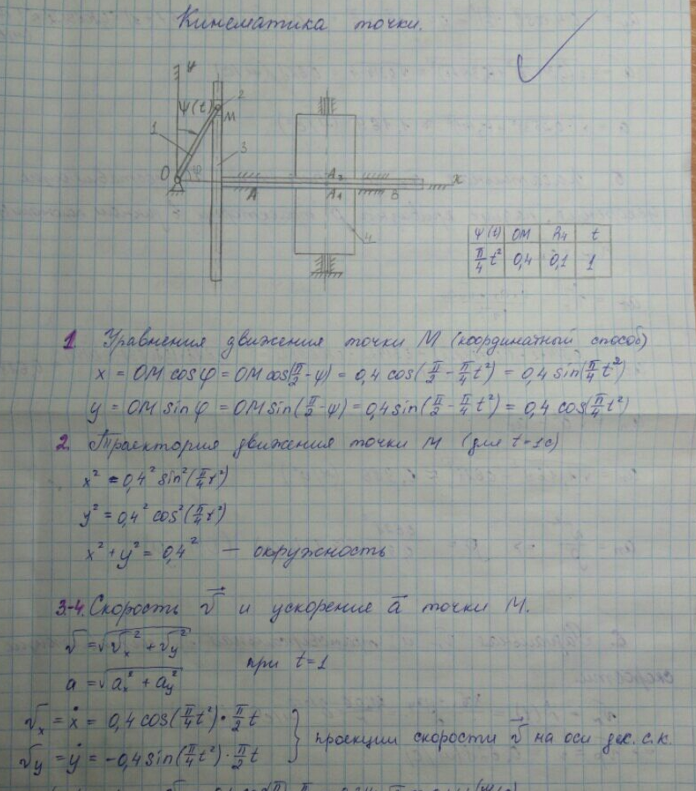 Кинематика точки.
y
ψ(t)
2
M
1
3
O
φ
A
A₂
A₁
B
x
4
ψ(t) OM R₄ t
π/4 t² 0,4 0,1 1
1. Уравнения движения точки M (координатный способ)
x = OM cos φ = OM cos(π/2 - ψ) = 0,4 cos(π/2 - π/4 t²) = 0,4 sin(π/4 t²)
y = OM sin φ = OM sin(π/2 - ψ) = 0,4 sin(π/2 - π/4 t²) = 0,4 cos(π/4 t²)
2. Траектория движения точки M (для t=1c)
x² = 0,4² sin²(π/4 t²)
y² = 0,4² cos²(π/4 t²)
x² + y² = 0,4² — окружность
3-4. Скорость v⃗ и ускорение a⃗ точки M.
v = √(vₓ² + v_y²)
a = √(aₓ² + a_y²) при t=1
vₓ = ẋ = 0,4 cos(π/4 t²) · π/2 t
v_y = ẏ = -0,4 sin(π/4 t²) · π/2 t } проекции скорости v⃗ на оси дек. с.к.